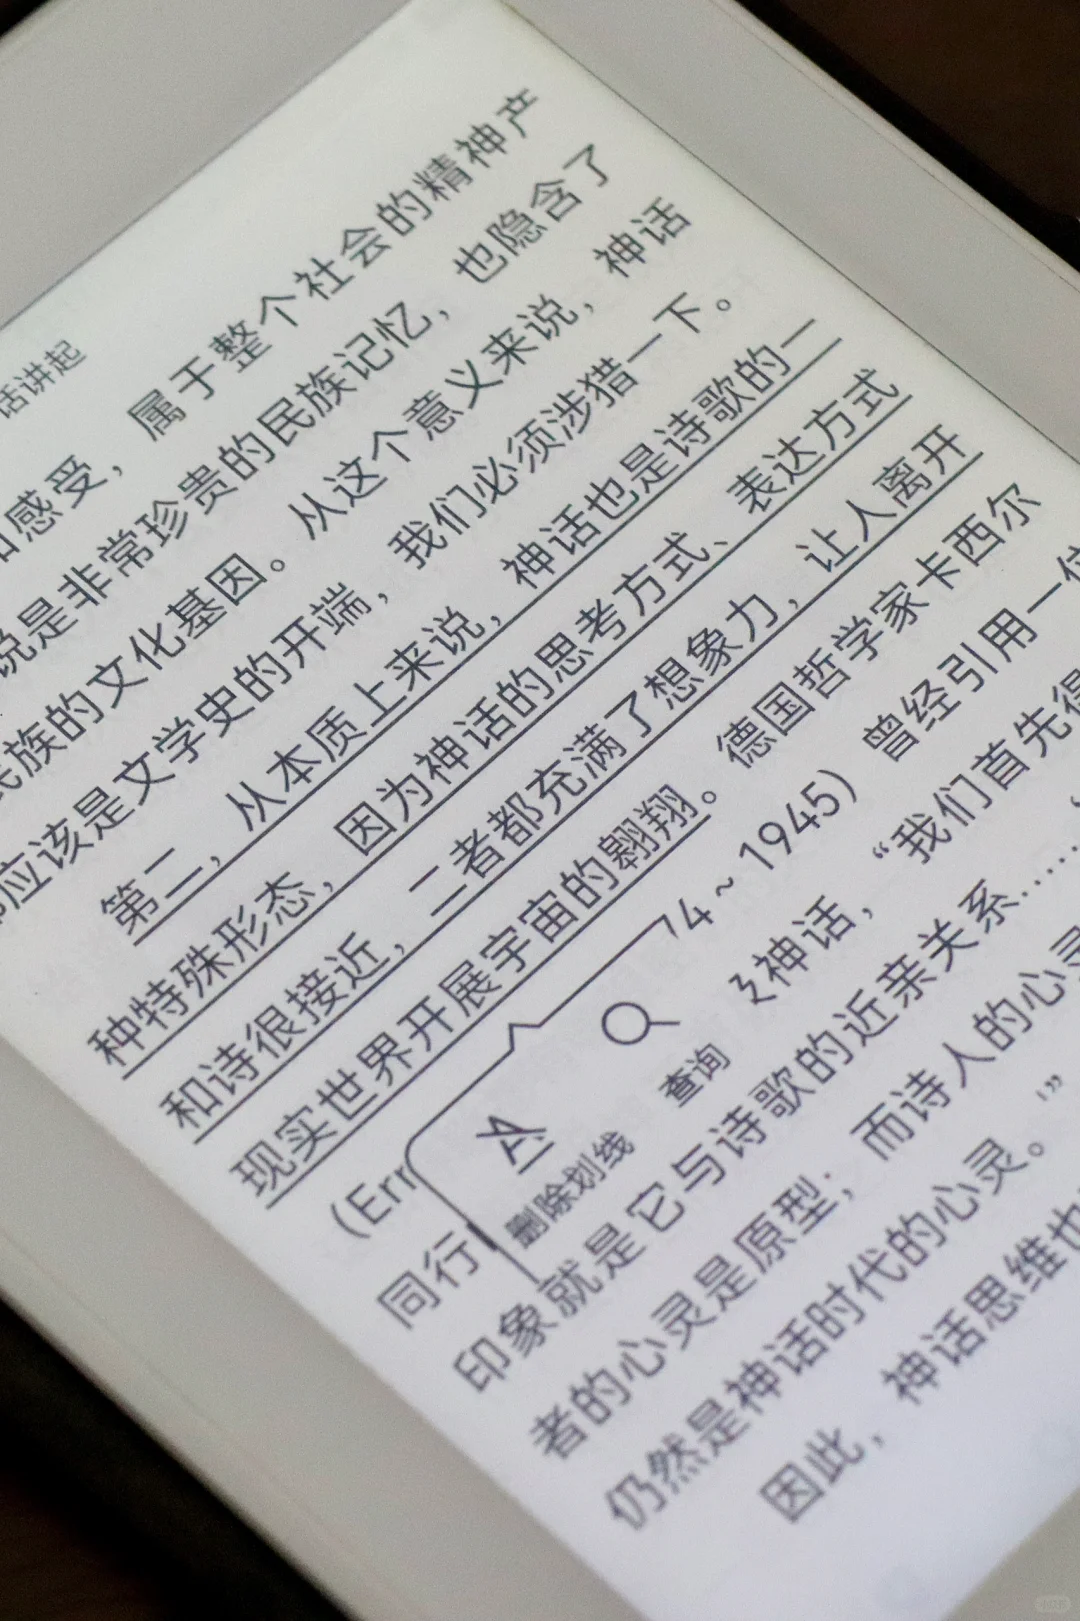 话讲起
感受，属于整个社会的精神产
说是非常珍贵的民族记忆，也隐含了
民族的文化基因。从这个意义来说，神话
应该是文学史的开端，我们必须涉猎一下。
第二，从本质上来说，神话也是诗歌的一
种特殊形态，因为神话的思考方式、表达方式
和诗很接近，二者都充满了想象力，让人离开
现实世界开展宇宙的翱翔。德国哲学家卡西尔
(Err 74～1945）曾经引用一位
同行 神话，“我们首先得
印象就是它与诗歌的近亲关系……
者的心灵是原型；而诗人的心灵
仍然是神话时代的心灵。”
因此，神话思维也
删除划线
查询